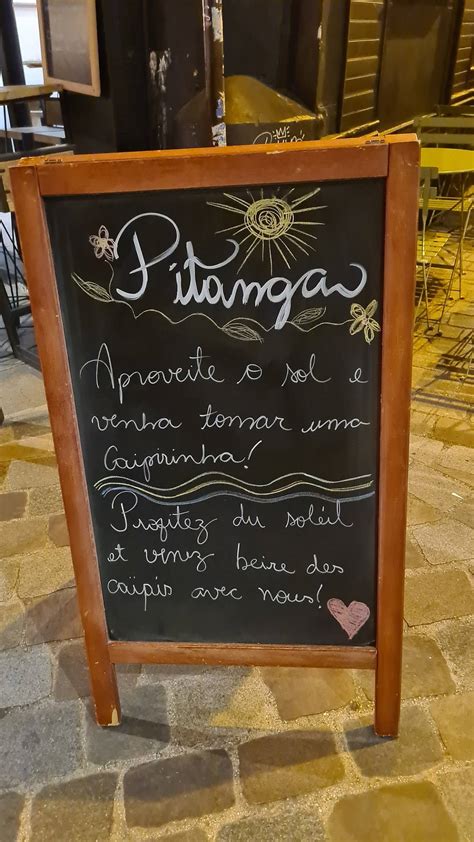 Pitanga
Aproveite o sol e
venha tomar uma
Caipirinha!
Profitez du soléil
et venez beire des
caïpis avec nous!